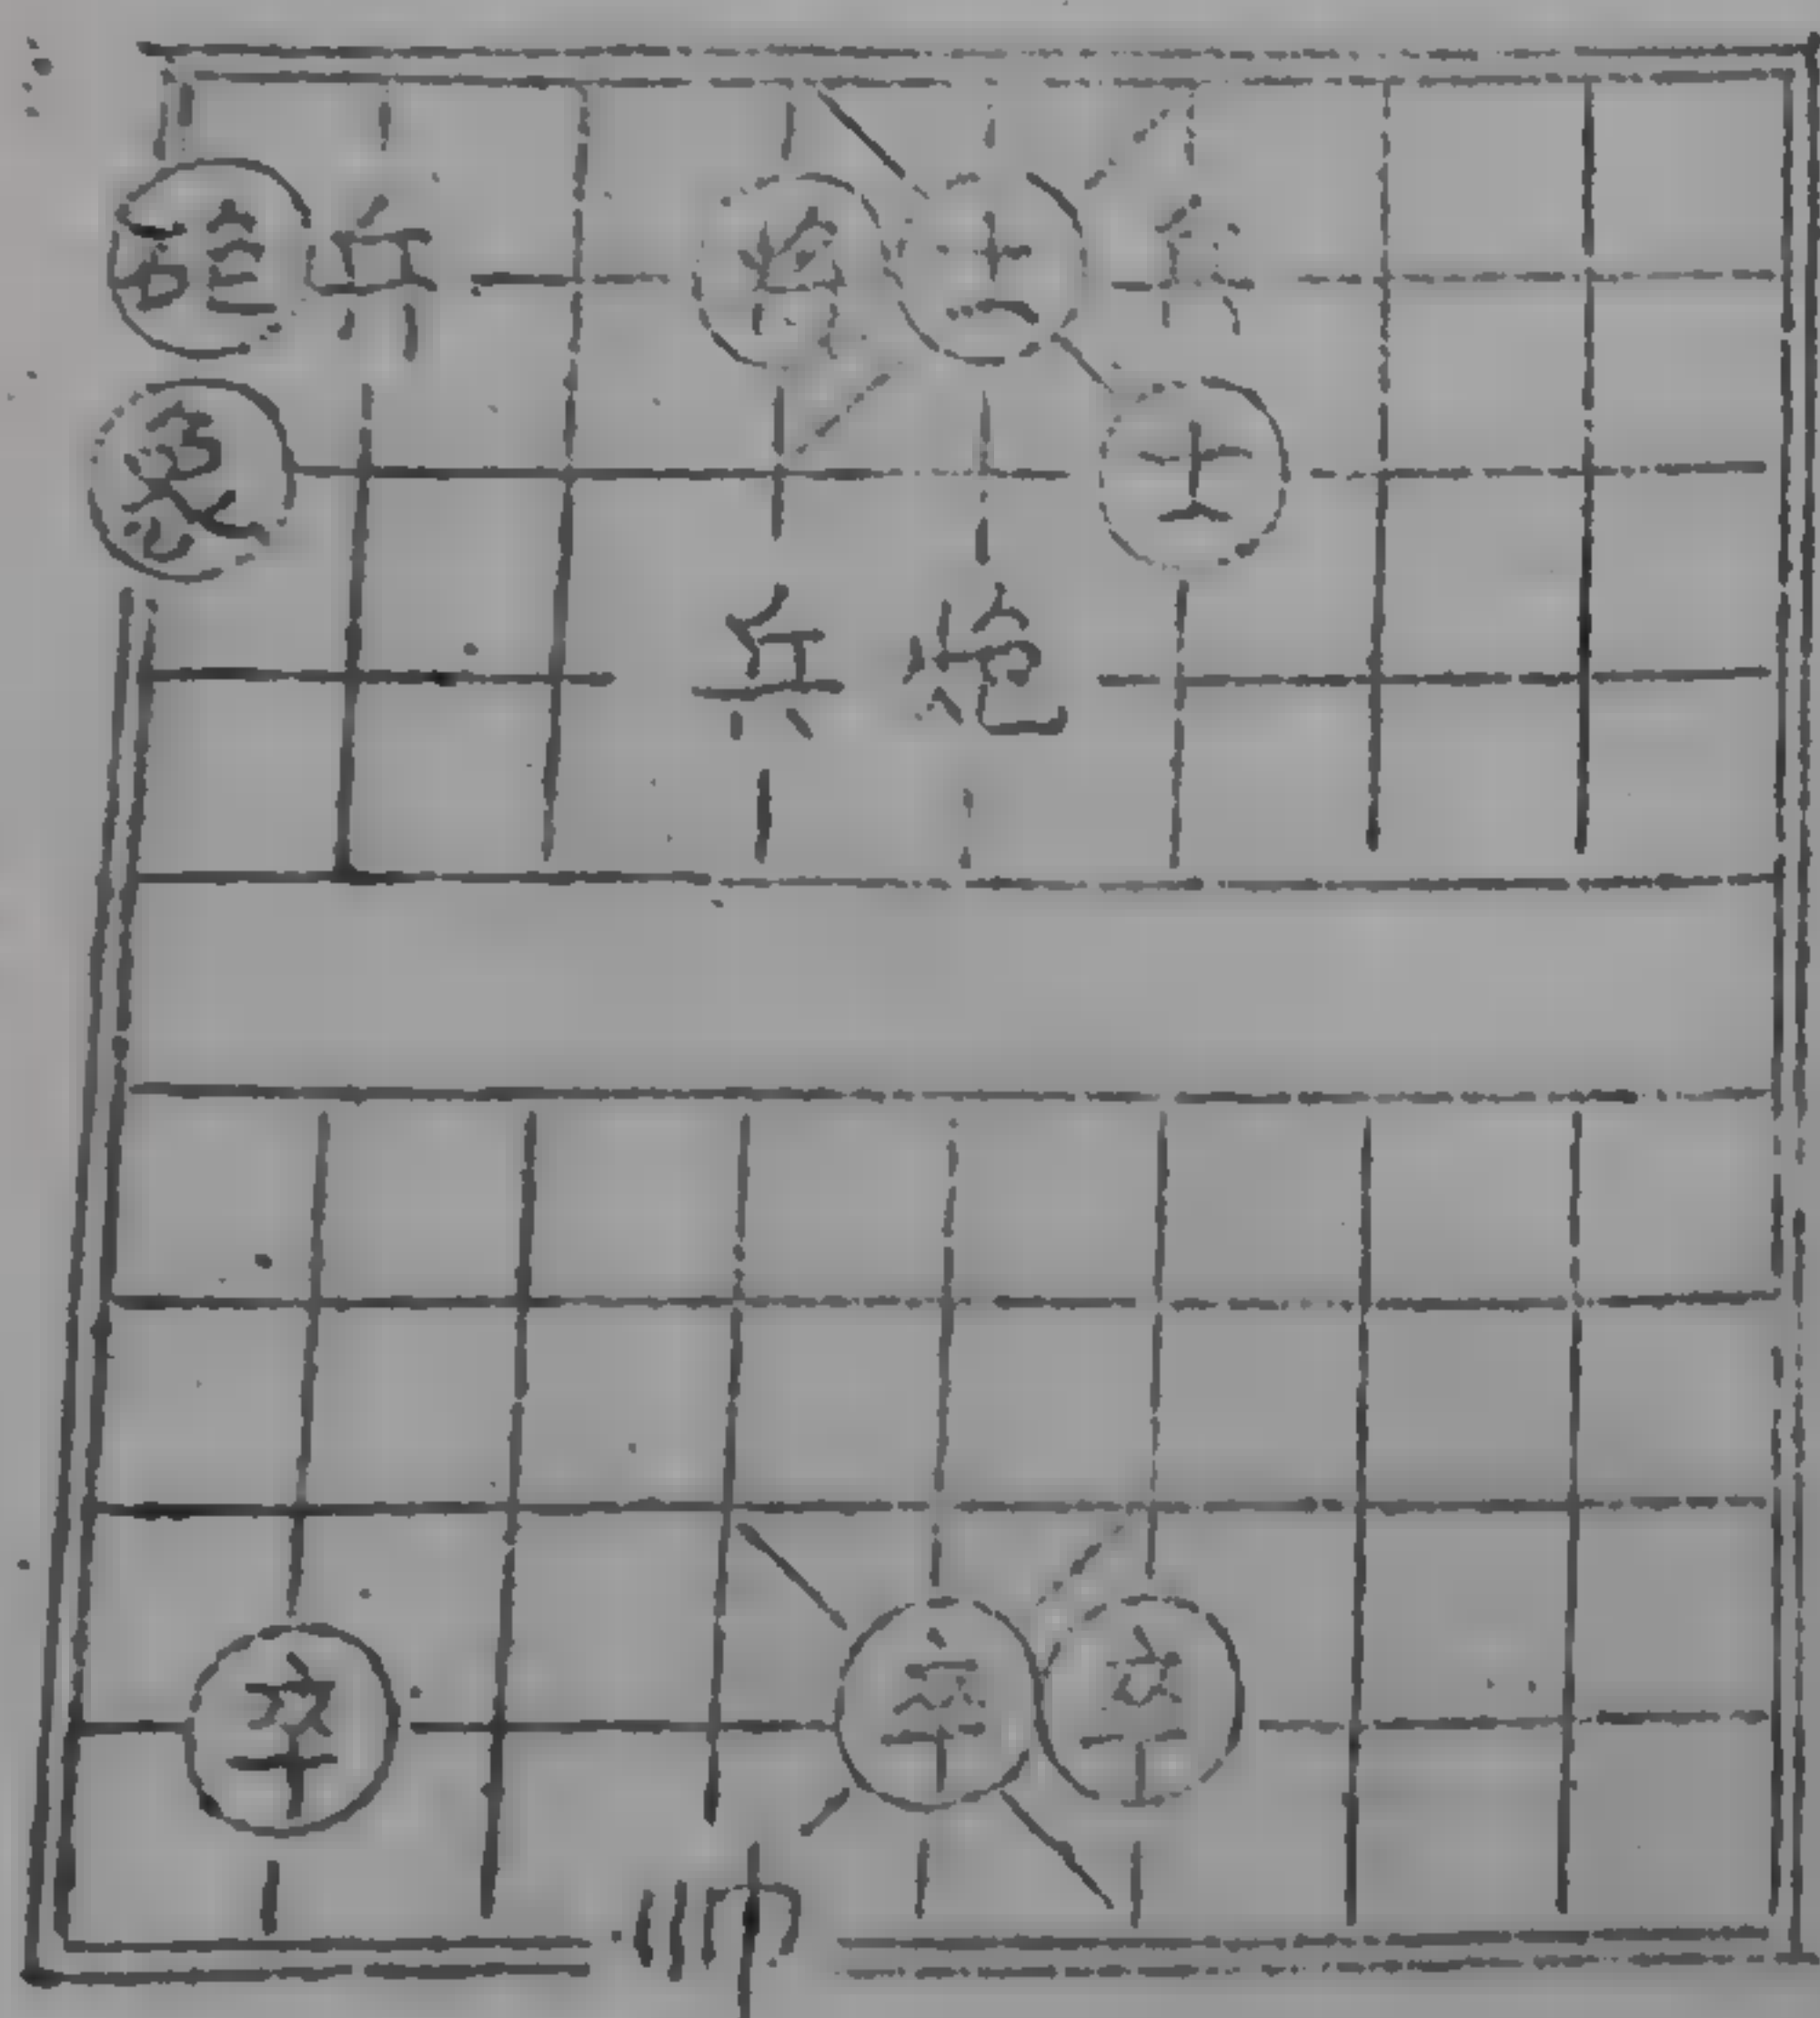 砲兵将士兵
象士
兵炮
卒卒卒
帅